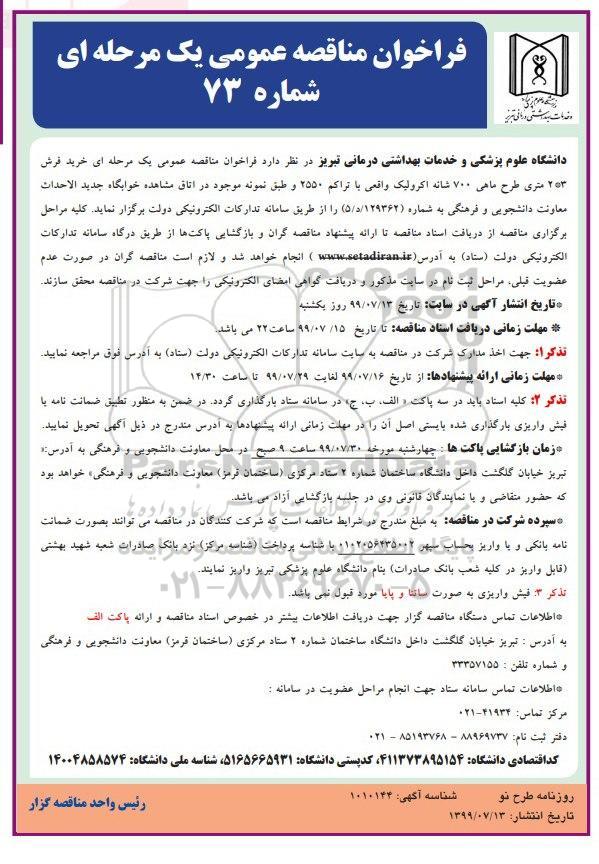 فراخوان مناقصه عمومی یک مرحله ای
شماره ۷۳
دانشگاه علوم پزشکی و خدمات بهداشتی درمانی تبریز در نظر دارد فراخوان مناقصه عمومی یک مرحله ای خرید فرش
۳*۲ متری طرح ماهی ۷۰۰ شانه اکرولیک واقعی با تراکم ۲۵۵۰ و طبق نمونه موجود در اتاق مشاهده خوابگاه جدید الاحداث
معاونت دانشجویی و فرهنگی به شماره (۵/د/۱۲۹۳۶۲) را از طریق سامانه تدارکات الکترونیکی دولت برگزار نماید. کلیه مراحل
برگزاری مناقصه از دریافت اسناد مناقصه تا ارائه پیشنهاد مناقصه گران و بازگشایی پاکت‌ها از طریق درگاه سامانه تدارکات
الکترونیکی دولت (ستاد) به آدرس(www.setadiran.ir ) انجام خواهد شد و لازم است مناقصه گران در صورت عدم
عضویت قبلی، مراحل ثبت نام در سایت مذکور و دریافت گواهی امضای الکترونیکی را جهت شرکت در مناقصه محقق سازند.
*تاریخ انتشار آگهی در سایت: تاریخ ۹۹/۰۷/۱۳ روز یکشنبه
* مهلت زمانی دریافت اسناد مناقصه: تا تاریخ ۱۵/ ۹۹/۰۷ ساعت۲۲ می باشد.
تذکر۱: جهت اخذ مدارک شرکت در مناقصه به سایت سامانه تدارکات الکترونیکی دولت (ستاد) به آدرس فوق مراجعه نمایید.
*مهلت زمانی ارائه پیشنهادها: از تاریخ ۹۹/۰۷/۱۶ لغایت ۹۹/۰۷/۲۹ تا ساعت ۱۴/۳۰
تذکر ۲: کلیه اسناد باید در سه پاکت « الف، ب، ج» در سامانه ستاد بارگذاری گردد. در ضمن به منظور تطبیق ضمانت نامه یا
فیش واریزی بارگذاری شده بایستی اصل آن را در مهلت زمانی ارائه پیشنهادها به آدرس مندرج در ذیل آگهی تحویل نمایید.
*زمان بازگشایی پاکت ها : چهارشنبه مورخه ۹۹/۰۷/۳۰ ساعت ۹ صبح در محل معاونت دانشجویی و فرهنگی به آدرس:«
تبریز خیابان گلگشت داخل دانشگاه ساختمان شماره ۲ ستاد مرکزی (ساختمان قرمز) معاونت دانشجویی و فرهنگی» خواهد بود
که حضور متقاضی و یا نمایندگان قانونی وی در جلسه بازگشایی آزاد می باشد.
*سپرده شرکت در مناقصه: به مبلغ مندرج در شرایط مناقصه است که شرکت کنندگان در مناقصه می توانند بصورت ضمانت
نامه بانکی و یا واریز بحساب سپهر ۰۱۰۲۰۵۶۴۳۵۰۰۲ با شناسه پرداخت (شناسه مرکز) نزد بانک صادرات شعبه شهید بهشتی
(قابل واریز در کلیه شعب بانک صادرات) بنام دانشگاه علوم پزشکی تبریز واریز نمایند.
تذکر ۳: فیش واریزی به صورت ساتنا و پایا مورد قبول نمی باشد.
*اطلاعات تماس دستگاه مناقصه گزار جهت دریافت اطلاعات بیشتر در خصوص اسناد مناقصه و ارائه پاکت الف
به آدرس : تبریز خیابان گلگشت داخل دانشگاه ساختمان شماره ۲ ستاد مرکزی (ساختمان قرمز) معاونت دانشجویی و فرهنگی
و شماره تلفن : ۳۳۳۵۷۱۵۵
*اطلاعات تماس سامانه ستاد جهت انجام مراحل عضویت در سامانه :
مرکز تماس: ۴۱۹۳۴-۰۲۱
دفتر ثبت نام: ۸۸۹۶۹۷۳۷ - ۸۵۱۹۳۷۶۸ - ۰۲۱
کداقتصادی دانشگاه: ۴۱۱۳۷۳۸۹۵۱۵۴، کدپستی دانشگاه: ۵۱۶۵۶۶۵۹۳۱، شناسه ملی دانشگاه: ۱۴۰۰۴۸۵۸۵۷۴
روزنامه طرح نو شناسه آگهی: ۱۰۱۰۱۴۴
تاریخ انتشار: ۱۳۹۹/۰۷/۱۳
رئیس واحد مناقصه گزار
ParsNamadData
۰۲۱-۸۸۳۴۹۶۷۰-۵